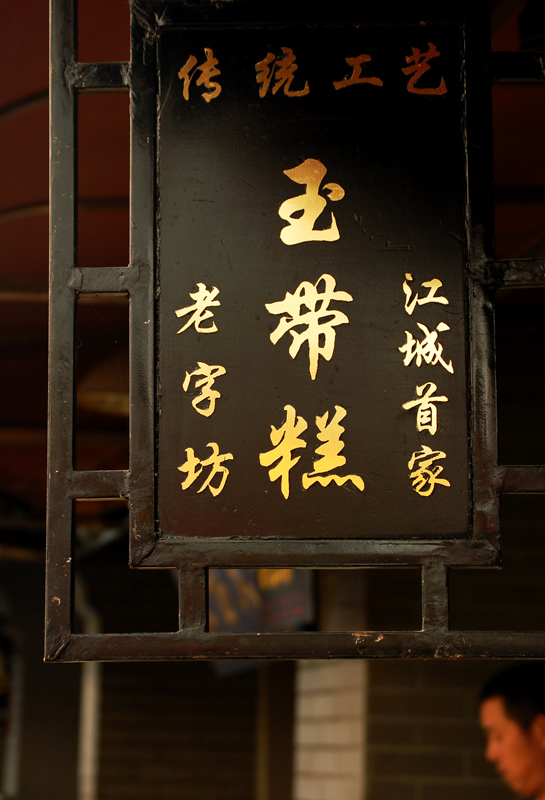 传统工艺
江城首家
玉带糕
老字坊